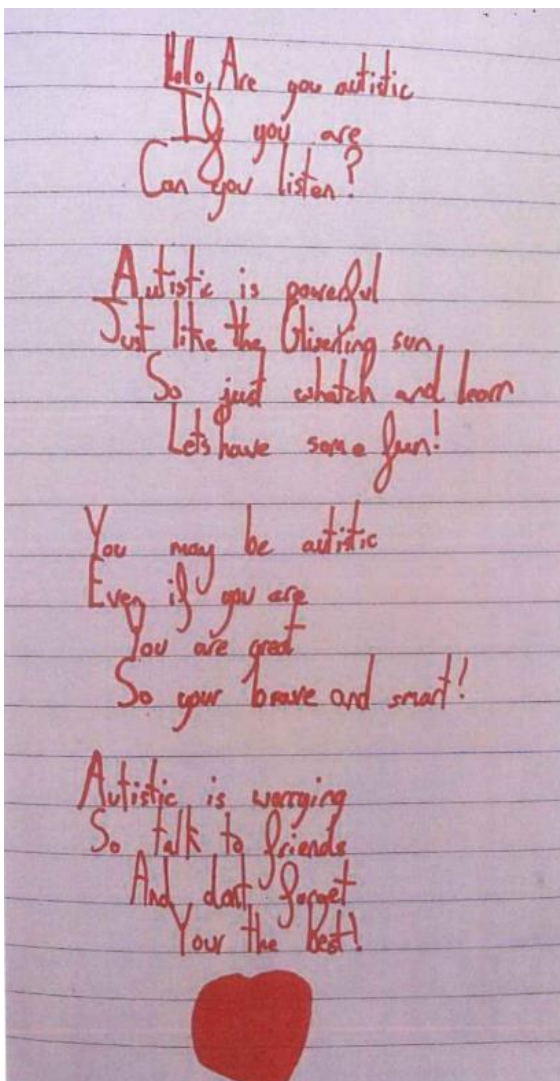 Hello, Are you autistic
If you are
Can you listen?
Autistic is powerful
Just like the Gliserting sun
So just whatch and learn
Lets have some fun!
You may be autistic
Even if you are
You are great
So your brave and smart!
Autistic is worrying
So talk to friends
And dont forget
Your the best!